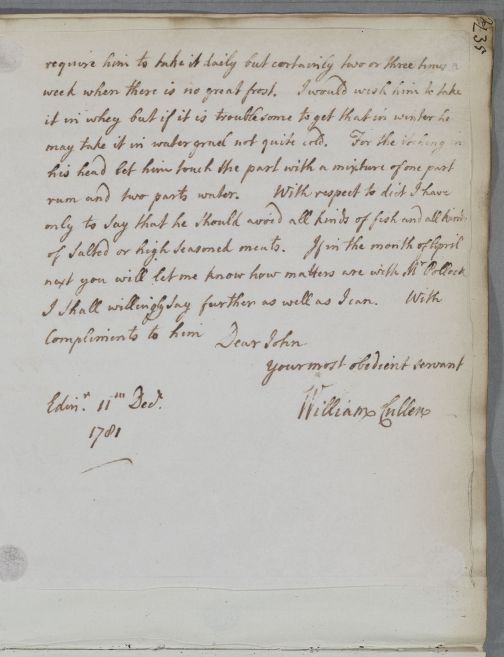 235
require him to take it daily but certainly two or three times a
week when there is no great frost. I would wish him to take
it in whey but if it is troublesome to get that in winter he
may take it in water gruel not quite cold. For the itching in
his head let him touch the part with a mixture of one part
rum and two parts water. With respect to diet I have
only to say that he should avoid all kinds of fish and all kinds
of salted or high seasoned meats. If in the month of April
next you will let me know how matters are with Mr Pollock
I shall willingly say further as well as I can. With
Compliments to him
Dear John
your most obedient servant
William Cullen
Edinr. 11th Decr.
1781